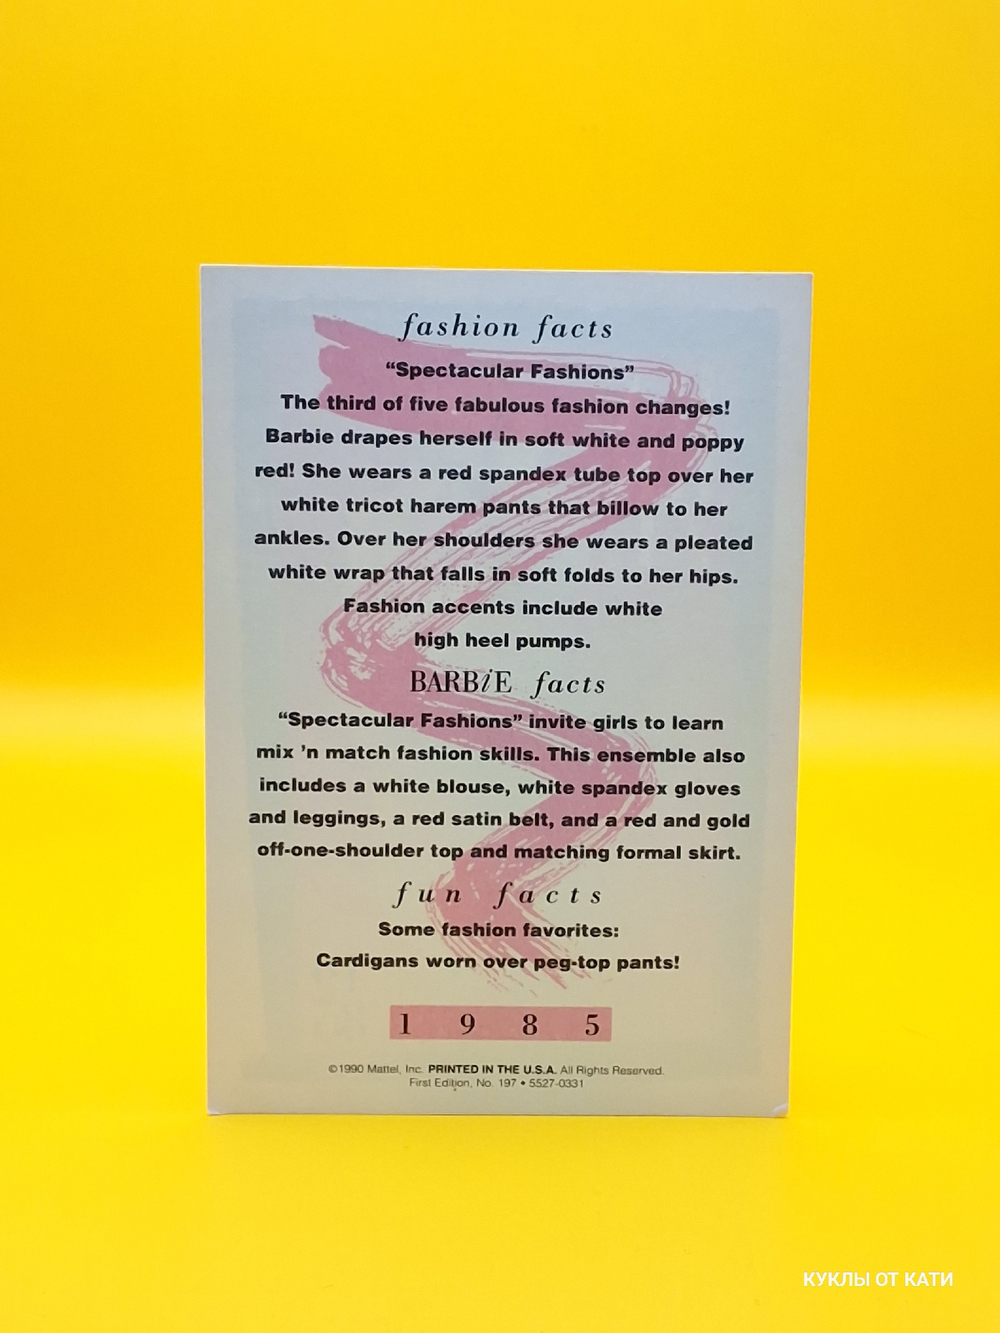 fashion facts
“Spectacular Fashions”
The third of five fabulous fashion changes!
Barbie drapes herself in soft white and poppy
red! She wears a red spandex tube top over her
white tricot harem pants that billow to her
ankles. Over her shoulders she wears a pleated
white wrap that falls in soft folds to her hips.
Fashion accents include white
high heel pumps.
BARBiE facts
“Spectacular Fashions” invite girls to learn
mix ’n match fashion skills. This ensemble also
includes a white blouse, white spandex gloves
and leggings, a red satin belt, and a red and gold
off-one-shoulder top and matching formal skirt.
fun facts
Some fashion favorites:
Cardigans worn over peg-top pants!
1985
©1990 Mattel, Inc. PRINTED IN THE U.S.A. All Rights Reserved.
First Edition, No. 197 • 5527-0331
КУКЛЫ ОТ КАТИ